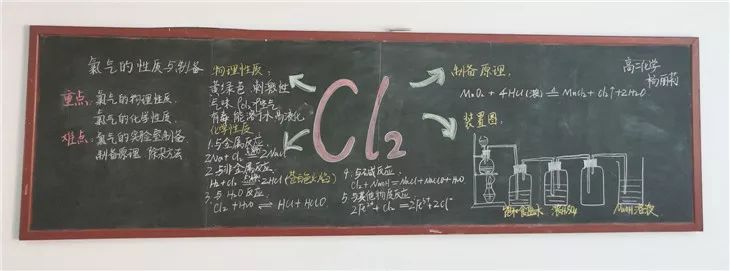 氯气的性质与制备
重点: 氯气的物理性质、
氯气的化学性质
难点: 氯气的实验室制备
制备原理 除杂方法
物理性质:
黄绿色 刺激性
气味
有毒 能溶于水 易液化
化学性质
1.与金属反应
2Na+Cl₂ 点燃 2NaCl
2.与非金属反应
H₂+Cl₂ 点燃 2HCl (苍白色火焰)
3.与H₂O反应
Cl₂+H₂O ⇌ HCl+HClO
Cl₂
4.与碱反应
Cl₂+NaOH=NaCl+NaClO+H₂O
5.与其他物质反应
2Fe²⁺+Cl₂=2Fe³⁺+2Cl⁻
制备原理:
MnO₂+4HCl(浓) ≜ MnCl₂+Cl₂↑+2H₂O
装置图:
饱和食盐水 浓H₂SO₄ NaOH溶液
高二化学